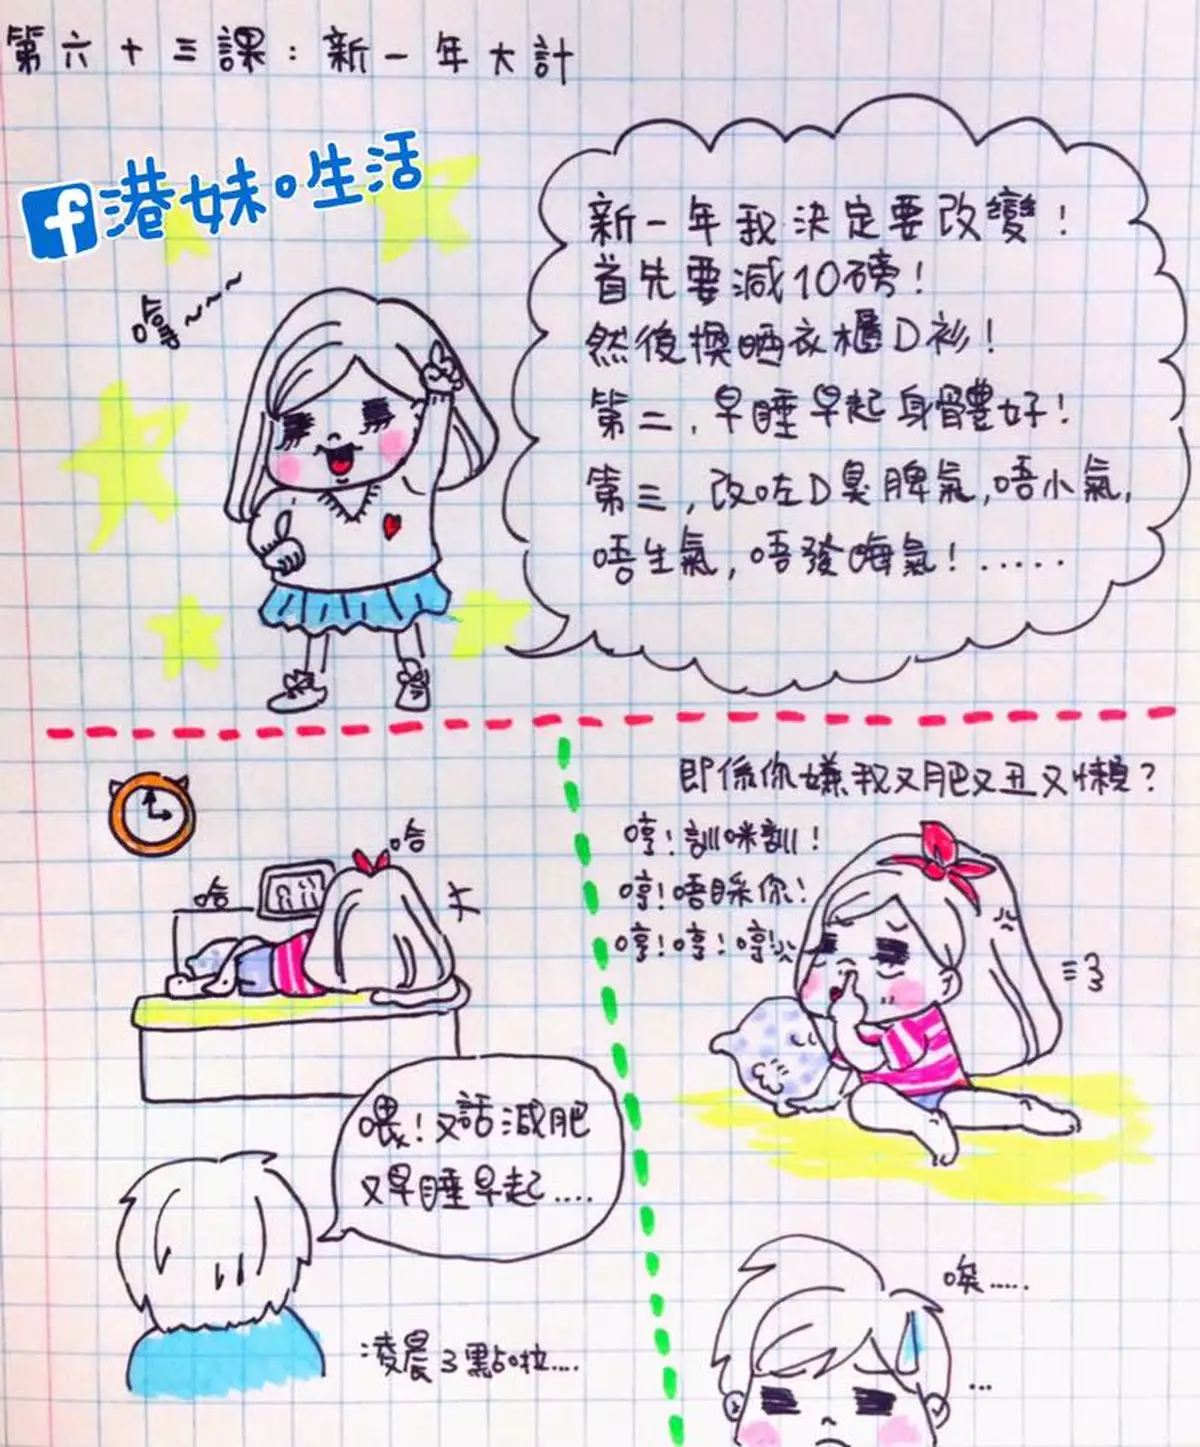 第六十三課:新一年大計
港妹性活
哼~~~
新一年我決定要改變!
首先要減10磅!
然後換晒衣櫃D衫!
第二,早睡早起身體好!
第三,改咗D臭脾氣,唔小氣,
唔生氣,唔發晦氣!.....
哈
哈
喂!又話減肥
又早睡早起....
凌晨3點啦....
即係你嫌我又肥又丑又懶?
哼!訓咪訓!
哼!唔睬你!
哼!哼!哼!
唉.....
...